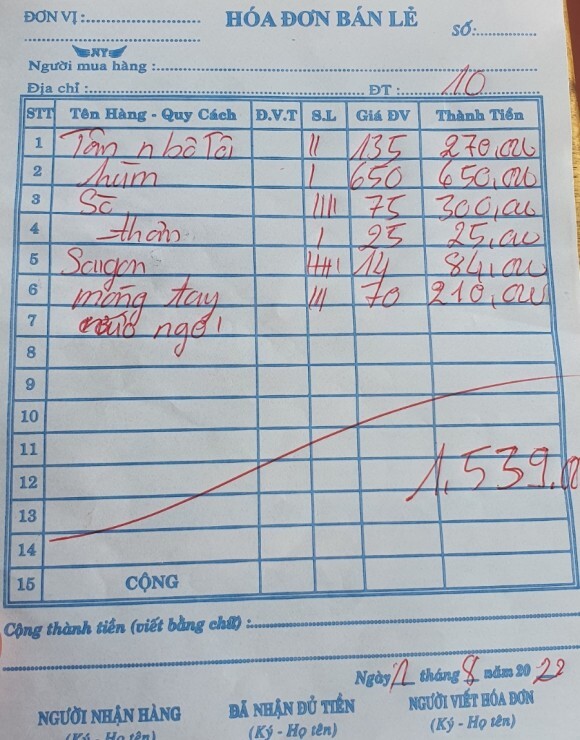 ĐƠN VỊ :
HÓA ĐƠN BÁN LẺ
SỐ:
NY
Người mua hàng :
Địa chỉ : ĐT : 10
STT Tên Hàng - Quy Cách Đ.V.T S.L Giá ĐV Thành Tiền
1 Tôm n bô Tỏi II 135 270,000
2 hùm I 650 650,000
3 Sò IIII 75 300,000
4 thơm I 25 25,000
5 Saigon IIIII I 14 84,000
6 móng tay III 70 210,000
7 ngói
8
9
10
11
12 1.539.00
13
14
15 CỘNG
Cộng thành tiền (viết bằng chữ) :
Ngày tháng 8 năm 20 22
NGƯỜI NHẬN HÀNG ĐÃ NHẬN ĐỦ TIỀN NGƯỜI VIẾT HÓA ĐƠN
(Ký - Họ tên) (Ký - Họ tên) (Ký - Họ tên)